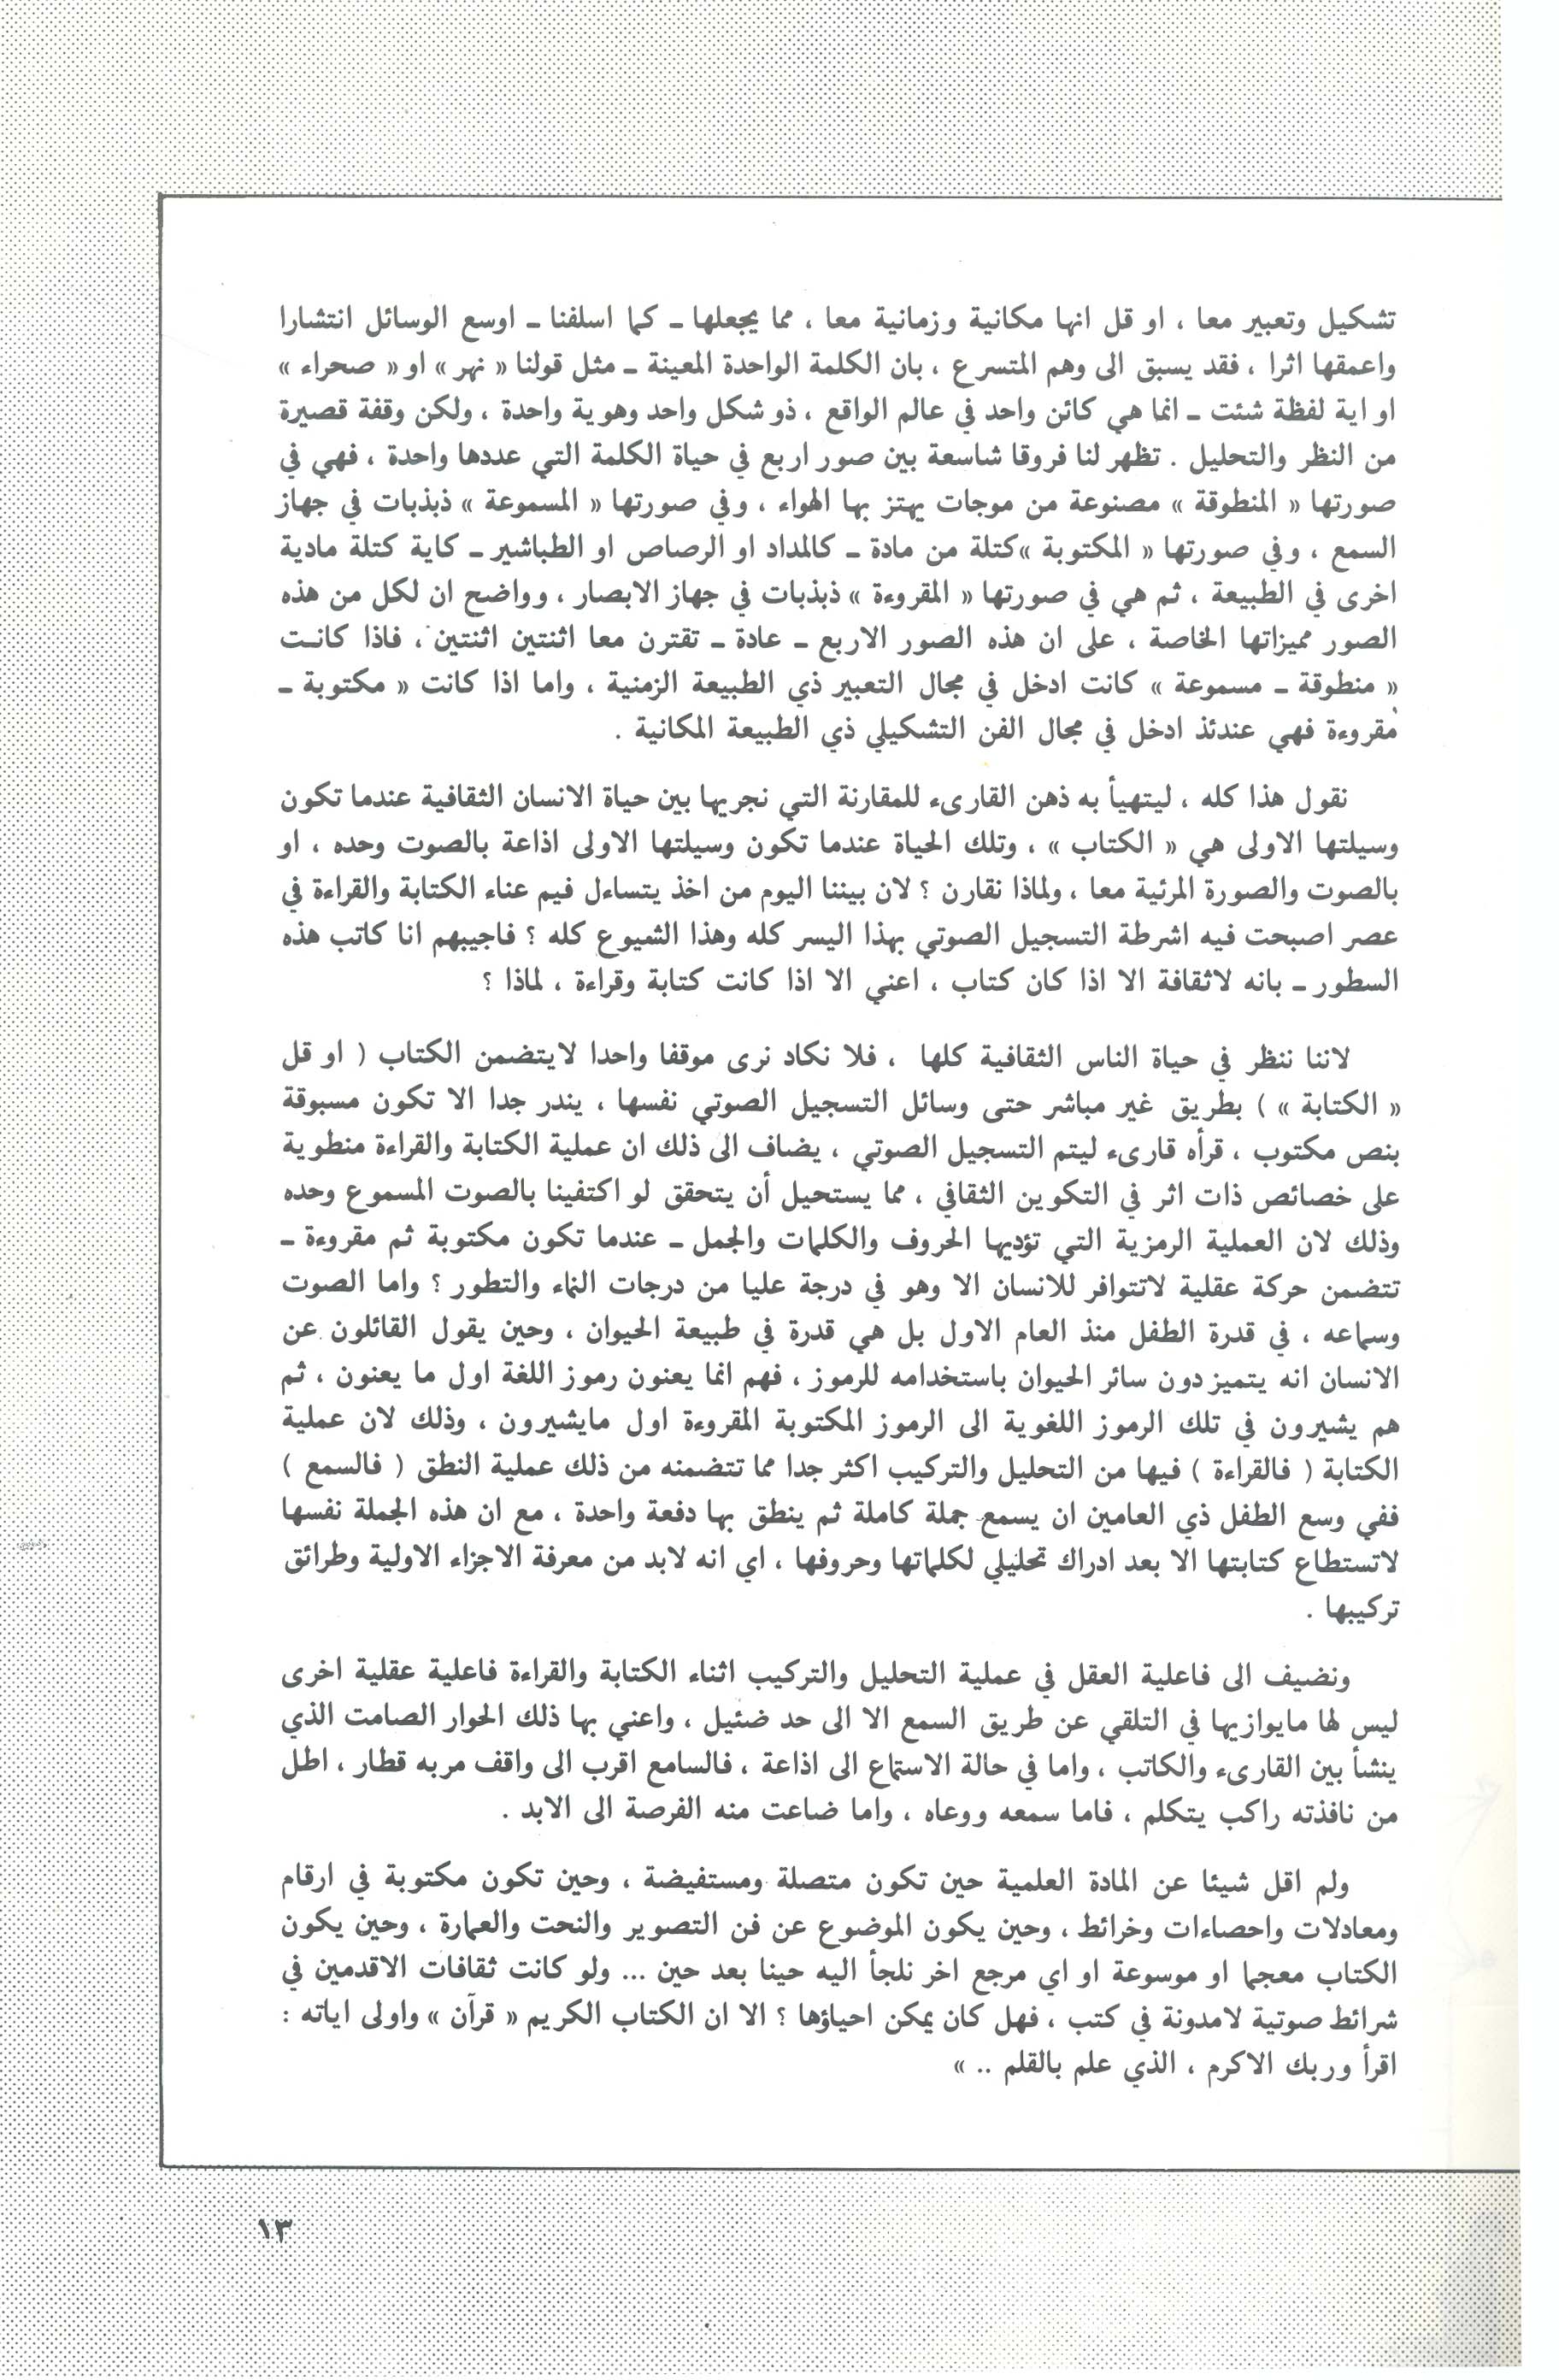 تشكيل وتعبير معا ، او قل انها مكانية وزمانية معا ، مما يجعلها ــ كما اسلفنا ــ اوسع الوسائل انتشارا
واعمقها اثرا ، فقد يسبق الى وهم المتسرع ، بان الكلمة الواحدة المعينة ــ مثل قولنا « نهر » او « صحراء »
او اية لفظة شئت ــ انما هي كائن واحد في عالم الواقع ، ذو شكل واحد وهوية واحدة ، ولكن وقفة قصيرة
من النظر والتحليل . تظهر لنا فروقا شاسعة بين صور اربع في حياة الكلمة التي عددها واحدة ، فهي في
صورتها « المنطوقة » مصنوعة من موجات يهتز بها الهواء ، وفي صورتها « المسموعة » ذبذبات في جهاز
السمع ، وفي صورتها « المكتوبة »كتلة من مادة ــ كالمداد او الرصاص او الطباشير ــ كاية كتلة مادية
اخرى في الطبيعة ، ثم هي في صورتها « المقروءة » ذبذبات في جهاز الابصار ، وواضح ان لكل من هذه
الصور مميزاتها الخاصة ، على ان هذه الصور الاربع ــ عادة ــ تقترن معا اثنتين اثنتين ، فاذا كانت
« منطوقة ــ مسموعة » كانت ادخل في مجال التعبير ذي الطبيعة الزمنية ، واما اذا كانت « مكتوبة ــ
مقروءة فهي عندئذ ادخل في مجال الفن التشكيلي ذي الطبيعة المكانية .
نقول هذا كله ، ليتهيأ به ذهن القارىء للمقارنة التي نجريها بين حياة الانسان الثقافية عندما تكون
وسيلتها الاولى هي « الكتاب » ، وتلك الحياة عندما تكون وسيلتها الاولى اذاعة بالصوت وحده ، او
بالصوت والصورة المرئية معا ، ولماذا نقارن ؟ لان بيننا اليوم من اخذ يتساءل فيم عناء الكتابة والقراءة في
عصر اصبحت فيه اشرطة التسجيل الصوتي بهذا اليسر كله وهذا الشيوع كله ؟ فاجيبهم انا كاتب هذه
السطور ــ بانه لاثقافة الا اذا كان كتاب ، اعني الا اذا كانت كتابة وقراءة ، لماذا ؟
لاننا ننظر في حياة الناس الثقافية كلها ، فلا نكاد نرى موقفا واحدا لايتضمن الكتاب ( او قل
« الكتابة » ) بطريق غير مباشر حتى وسائل التسجيل الصوتي نفسها ، يندر جدا الا تكون مسبوقة
بنص مكتوب ، قرأه قارىء ليتم التسجيل الصوتي ، يضاف الى ذلك ان عملية الكتابة والقراءة منطوية
على خصائص ذات اثر في التكوين الثقافي ، مما يستحيل أن يتحقق لو اكتفينا بالصوت المسموع وحده
وذلك لان العملية الرمزية التي تؤديها الحروف والكلمات والجمل ــ عندما تكون مكتوبة ثم مقروءة ــ
تتضمن حركة عقلية لاتتوافر للانسان الا وهو في درجة عليا من درجات النماء والتطور ؟ واما الصوت
وسماعه ، في قدرة الطفل منذ العام الاول بل هي قدرة في طبيعة الحيوان ، وحين يقول القائلون عن
الانسان انه يتميز دون سائر الحيوان باستخدامه للرموز ، فهم انما يعنون رموز اللغة اول ما يعنون ، ثم
هم يشيرون في تلك الرموز اللغوية الى الرموز المكتوبة المقروءة اول مايشيرون ، وذلك لان عملية
الكتابة ( فالقراءة ) فيها من التحليل والتركيب اكثر جدا مما تتضمنه من ذلك عملية النطق ( فالسمع )
ففي وسع الطفل ذي العامين ان يسمع جملة كاملة ثم ينطق بها دفعة واحدة ، مع ان هذه الجملة نفسها
لاتستطاع كتابتها الا بعد ادراك تحليلي لكلماتها وحروفها ، اي انه لابد من معرفة الاجزاء الاولية وطرائق
تركيبها .
ونضيف الى فاعلية العقل في عملية التحليل والتركيب اثناء الكتابة والقراءة فاعلية عقلية اخرى
ليس لها مايوازيها في التلقي عن طريق السمع الا الى حد ضئيل ، واعني بها ذلك الحوار الصامت الذي
ينشأ بين القارىء والكاتب ، واما في حالة الاستماع الى اذاعة ، فالسامع اقرب الى واقف مربه قطار ، اطل
من نافذته راكب يتكلم ، فاما سمعه ووعاه ، واما ضاعت منه الفرصة الى الابد .
ولم اقل شيئا عن المادة العلمية حين تكون متصلة ومستفيضة ، وحين تكون مكتوبة في ارقام
ومعادلات واحصاءات وخرائط ، وحين يكون الموضوع عن فن التصوير والنحت والعمارة ، وحين يكون
الكتاب معجما او موسوعة او اي مرجع اخر نلجأ اليه حينا بعد حين ... ولو كانت ثقافات الاقدمين في
شرائط صوتية لامدونة في كتب ، فهل كان يمكن احياؤها ؟ الا ان الكتاب الكريم « قرآن » واولى اياته :
اقرأ وربك الاكرم ، الذي علم بالقلم .. »
١٣